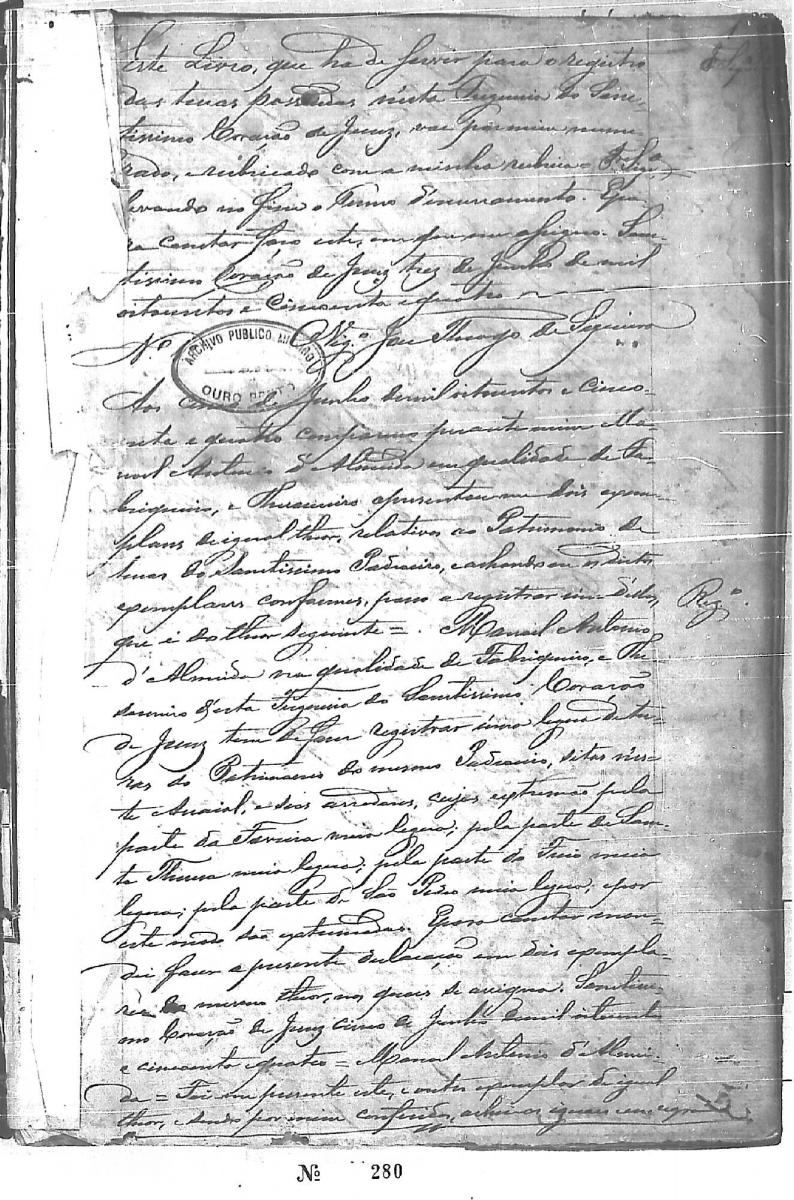 Este Livro, que ha de servir para o registro
das terras possuidas n'esta Freguezia do Sanc-
tissimo Coração de Jesuz, vae por mim nume
rado, e rubricado com a minha rubrica
levando no fim o Termo d'encerramento. E pa-
ra constar faço este, em que me assigno. San-
tissimo Coração de Jesuz trez de Junho de mil
oitocentos e cincoenta e quatro
Vigº José Thiago de Siqueira
Nº
ARCHIVO PUBLICO MINEIRO
OURO PRETO
Aos cinco de Junho de mil oitocentos e cinco-
enta e quatro compareceu perante mim Ma-
noel Antonio d'Almeida em qualidade de Fa-
briqueiro, e Thesoureiro apresentou me dois exem-
plares de igual theor, relativos ao Patrimonio de
terras do Sanctissimo Padroeiro, e achando eu os dictos
exemplares conformes, passo a registrar um d'elles,
Regº.
que é do theor seguinte = Manoel Antonio
d'Almeida na qualidade de Fabriqueiro, e The
soureiro d'esta Freguezia do Santissimo Coração
de Jesuz tem de fazer registrar uma legoa de ter-
ras do Patrimonio do mesmo Padroeiro, sitas n'es-
te Arraial, e seos arredores, cujas extremão pela
parte da meia legoa; pela parte de San-
ta Thereza meia legoa; pela parte do meia
legoa; pela parte de São Pedro meia legoa; e por
este modo são extremadas. E para constar man-
dei fazer a presente declaração em dois exempla-
res do mesmo theor, nos quaes se assigna. Santissi-
mo Coração de Jesuz cinco de Junho de mil oitocentos
e cincoenta quatro = Manoel Antonio d'Almei-
da = Foi me presente este, e outro exemplar de igual
theor, e sendo por mim conferidos, achei os iguaes em
Nº 280